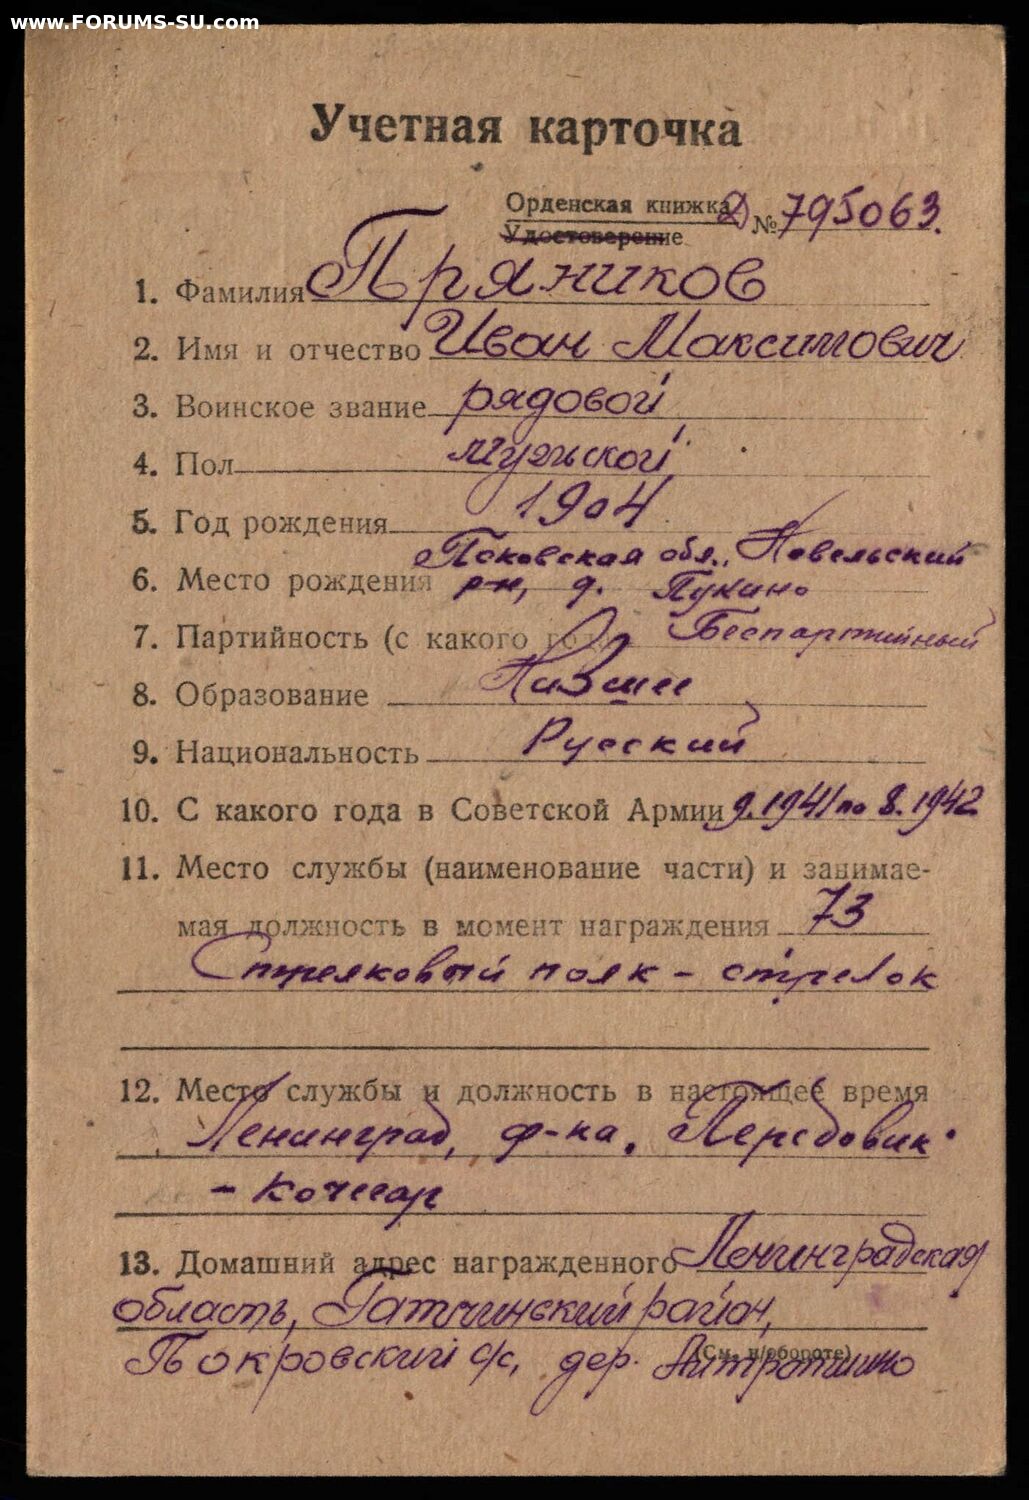 www.FORUMS-SU.com
Учетная карточка
Орденская книжка Д № 795063.
Удостоверение
1. Фамилия Пряников
2. Имя и отчество Иван Максимович
3. Воинское звание рядовой
4. Пол мужской
5. Год рождения 1904
Псковская обл., Невельский
6. Место рождения р-н, д.
7. Партийность (с какого года) Беспартийный
8. Образование Низшее
9. Национальность Русский
10. С какого года в Советской Армии 9.1941 по 8.1942
11. Место службы (наименование части) и занимае-
мая должность в момент награждения 73
Стрелковый полк - стрелок
12. Место службы и должность в настоящее время
Ленинград, ф-ка „Передовик"
- кочегар
13. Домашний адрес награжденного Ленинградская
область, Гатчинский район,
(См. н/обороте)
Покровский с/с, дер.